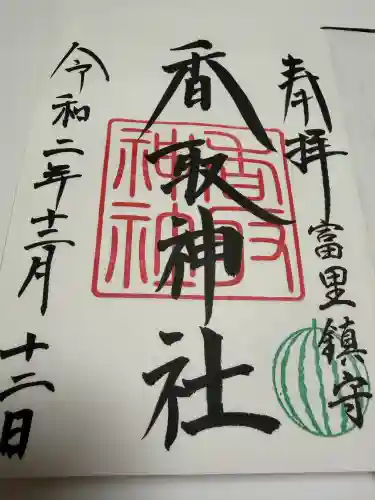 奉拝
富里鎮守
香取神社
香取神社
令和二年十二月十二日